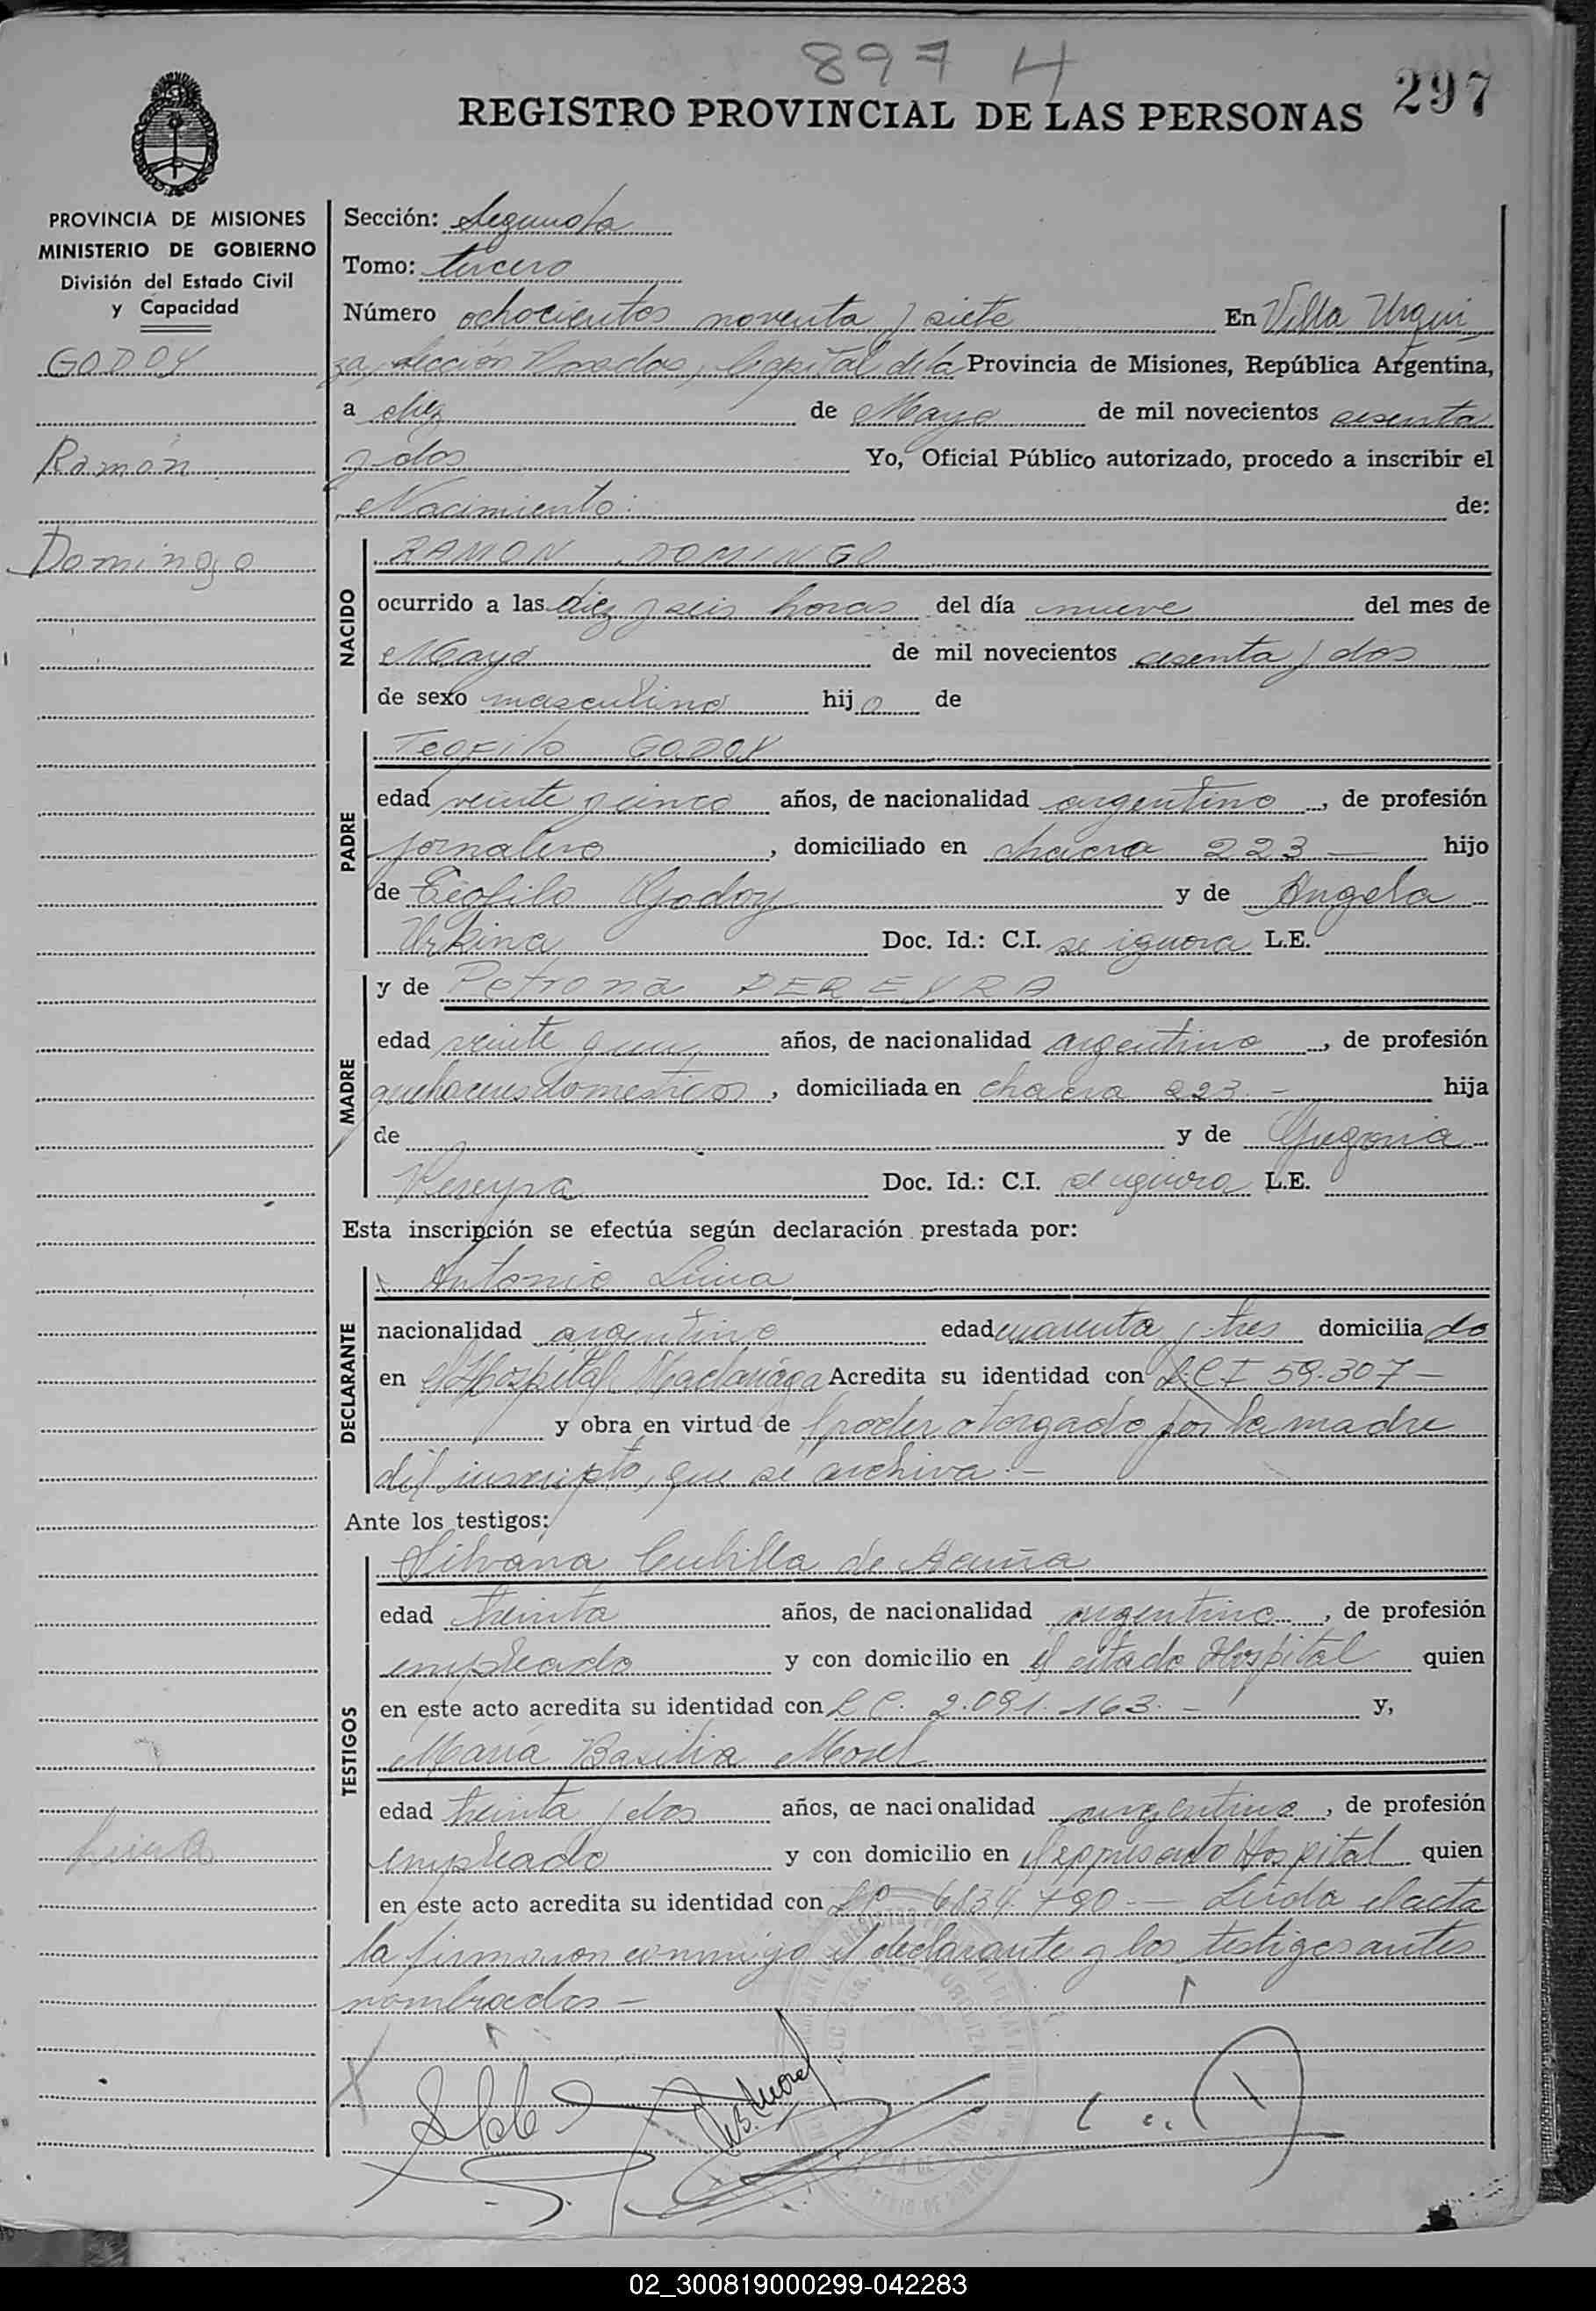 897 H
297
REGISTRO PROVINCIAL DE LAS PERSONAS
PROVINCIA DE MISIONES
MINISTERIO DE GOBIERNO
División del Estado Civil
y Capacidad
GODOY
Ramón
Domingo
Sección: Segunda
Tomo: tercero
Número ochocientos noventa y siete En Villa Urqui
za, sección Posadas, Capital de la Provincia de Misiones, República Argentina,
a diez de Mayo de mil novecientos sesenta
y dos Yo, Oficial Público autorizado, procedo a inscribir el
Nacimiento: de:
NACIDO
RAMON DOMINGO
ocurrido a las diez y seis horas del día nueve del mes de
Mayo de mil novecientos sesenta y dos
de sexo masculino hijo de
PADRE
Teofilo GODOY
edad veinte y cinco años, de nacionalidad argentino, de profesión
jornalero, domiciliado en chacra 223 — hijo
de Teofilo Godoy y de Angela
Doc. Id.: C.I. se ignora L.E.
MADRE
y de Petrona PEREYRA
edad veinte años, de nacionalidad argentina, de profesión
quehaceres domesticos, domiciliada en chacra 223.- hija
de y de Gregoria
Pereyra Doc. Id.: C.I. se ignora L.E.
Esta inscripción se efectúa según declaración prestada por:
DECLARANTE
Antonio
nacionalidad argentino edad cuarenta y tres domiciliado
en el Hospital Madariaga Acredita su identidad con C I 59.307 —
y obra en virtud de poder otorgado por la madre
del inscripto, que se archiva.-
Ante los testigos:
TESTIGOS
Silvana Cubilla de Acuña
edad treinta años, de nacionalidad argentina, de profesión
empleada y con domicilio en el citado Hospital quien
en este acto acredita su identidad con L C. 2.091.163.- y,
Maria Basilia Morel
edad treinta y dos años, de nacionalidad argentina, de profesión
empleada y con domicilio en el expresado Hospital quien
en este acto acredita su identidad con — Leida el acta
la firmaron conmigo el declarante y los testigos antes
nombrados —
02_300819000299-042283